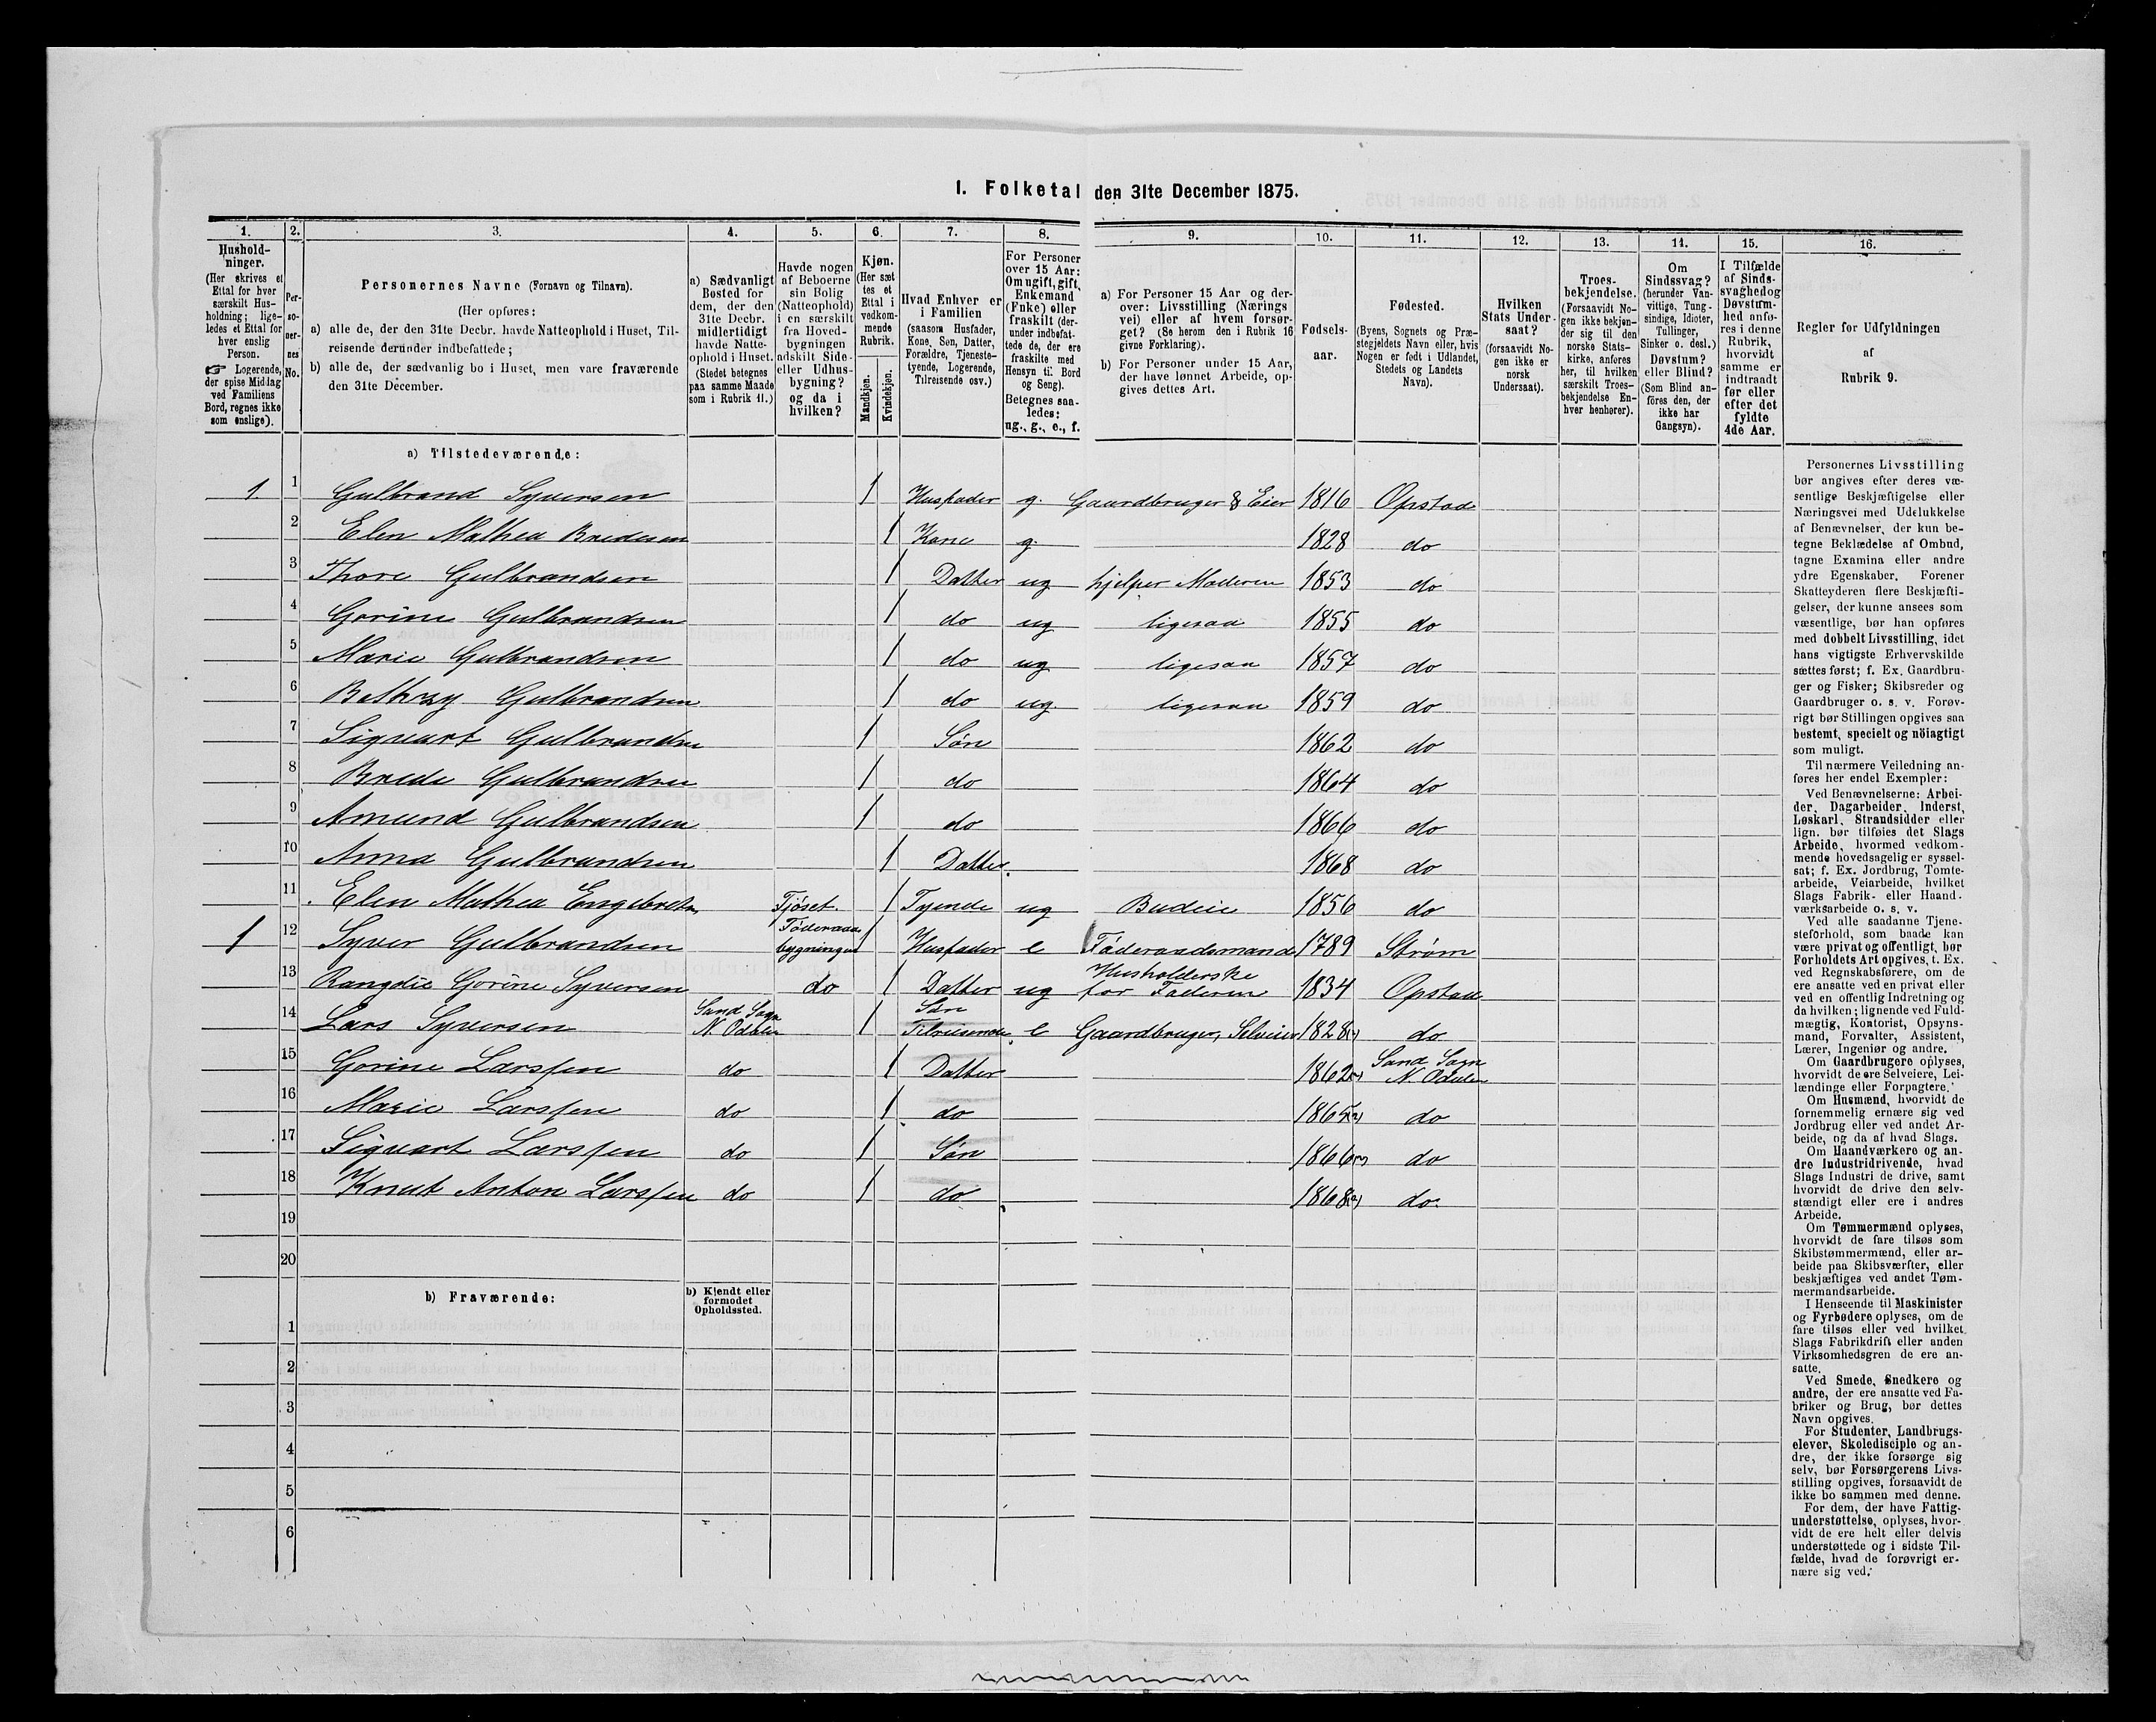 I. Folketal den 31te December 1875.
1. 2. 3. 4. 5. 6. 7. 8. 9. 10. 11. 12. 13. 14. 15. 16.
Hushold-
ninger.
(Her skrives et
Ettal for hver
særskilt Hus-
holdning; lige-
ledes et Ettal for
hver enslig
Person.
☞ Logerende,
der spise Middag
ved Familiens
Bord, regnes ikke
som enslige).
Per-
so-
ner-
nes
No.
Personernes Navne (Fornavn og Tilnavn).
(Her opføres:
a) alle de, der den 31te Decbr. havde Natteophold i Huset, Til-
reisende derunder indbefattede;
b) alle de, der sædvanlig bo i Huset, men vare fraværende
den 31te December.
a) Sædvanligt
Bosted for
dem, der den
31te Decbr.
midlertidigt
havde Natte-
ophold i Huset.
(Stedet betegnes
paa samme Maade
som i Rubrik 11.)
Havde nogen
af Beboerne
sin Bolig
(Natteophold)
i en særskilt
fra Hoved-
bygningen
adskilt Side-
eller Udhus-
bygning?
og da i
hvilken?
Kjøn.
(Her sæt
tes et
Ettal i
vedkom-
mende
Rubrik.
Mandkjøn.
Kvindekjøn.
Hvad Enhver er
i Familien
(saasom Husfader,
Kone, Søn, Datter,
Forældre, Tjeneste-
tyende, Logerende,
Tilreisende osv.)
For Personer
over 15 Aar:
Om ugift, gift,
Enkemand
(Enke) eller
fraskilt (der-
under indbefat-
tede de, der ere
fraskilte med
Hensyn til Bord
og Seng).
Betegnes saa-
ledes:
ug., g., e., f.
a) For Personer 15 Aar og der-
over: Livsstilling (Nærings
vei) eller af hvem forsør-
get? (Se herom den i Rubrik 16
givne Forklaring).
b) For Personer under 15 Aar,
der have lønnet Arbeide, op-
gives dettes Art.
Fødsels-
aar.
Fødested.
(Byens, Sognets og Præ-
stegjeldets Navn eller, hvis
Nogen er født i Udlandet,
Stedets og Landets
Navn).
Hvilken
Stats Under-
saat?
(forsaavidt No-
gen ikke er
norsk
Undersaat).
Troes-
bekjendelse.
(Forsaavidt No-
gen ikke bekjen-
der sig til den
norske Stats-
kirke, anføres
her, til hvilken
særskilt Troes-
bekjendelse En-
hver henhører).
Om
Sindssvag?
(herunder Van-
vittige, Tung-
sindige, Idioter,
Tullinger,
Sinker o. desl.)
Døvstum?
eller Blind?
(Som Blind an-
føres den, der
ikke har
Gangsyn).
I Tilfælde
af Sinds-
svaghed og
Døvstum-
hed anfø-
res i denne
Rubrik,
hvorvidt
samme er
indtraadt
før eller
efter det
fyldte
4de Aar.
Regler for Udfyldningen
af
Rubrik 9.
a) Tilstedeværende:
1 1 Gulbrand Syversen 1 Husfader g. Gaardbruger & Eier 1816 Opstad
2 Elen Mathea Bredesen 1 Kone g. 1828 do
3 Thore Gulbrandsen 1 Datter ug hjelper Moderen 1853 do
4 Gorine Gulbrandsen 1 do ug ligesaa 1855 do
5 Marie Gulbrandsen 1 do ug ligesaa 1857 do
6 Bethzy Gulbrandsen 1 do ug ligesaa 1859 do
7 Sigvart Gulbrandsen 1 Søn 1862 do
8 Brede Gulbrandsen 1 do 1864 do
9 Amund Gulbrandsen 1 do 1866 do
10 Anna Gulbrandsen 1 Datter 1868 do
11 Elen Mathea Engebretsen Fjöset. 1 Tyende ug Budeie 1856 do
1 12 Syver Gulbrandsen Föderaads bygningen 1 Husfader e Föderaadsmand 1789 Strøm
13 Rangdie Gorine Syversen do 1 Datter ug Husholderske for Faderen 1834 Opstad
14 Lars Syversen Sand Sogn N. Odalen 1 Søn Tilreisende e Gaardbruger, Selveier 1828 do
15 Gorine Larssen do 1 Datter 1862 Sand Sogn N. Odalen
16 Marie Larssen do 1 do 1865 do
17 Sigvart Larssen do 1 Søn 1866 do
18 Knut Anton Larssen do 1 do 1868 do.
19
20
b) Fraværende:
b) Kjendt eller
formodet
Opholdssted.
1
2
3
4
5
6
Personernes Livsstilling
bør angives efter deres væ-
sentlige Beskjæftigelse eller
Næringsvei med Udelukkelse
af Benævnelser, der kun be-
tegne Beklædelse af Ombud,
tagne Examina eller andre
ydre Egenskaber. Forener
Skatteyderen flere Beskjæfti-
gelser, der kunne ansees som
væsentlige, bør han opføres
med dobbelt Livsstilling, idet
hans vigtigste Erhvervskilde
sættes først; f. Ex. Gaardbru-
ger og Fisker; Skibsreder og
Gaardbruger o. s. v. Forøv-
rigt bør Stillingen opgives saa
bestemt, specielt og nöiagtigt
som muligt.
Til nærmere Veiledning an-
føres her endel Exempler:
Ved Benævnelserne: Arbei-
der, Dagarbeider, Inderst,
Løskarl, Strandsidder eller
lign. bør tilføies det Slags
Arbeide, hvormed vedkom-
mende hovedsagelig er syssel-
sat; f. Ex. Jordbrug, Tomte-
arbeide, Veiarbeide, hvilket
Slags Fabrik- eller Haand-
værksarbeide o. s. v.
Ved alle saadanne Tjene-
steforhold, som baade kan
være privat og offentligt, bør
Forholdets Art opgives, t. Ex.
ved Regnskabsførere, om de
ere ansatte ved en privat eller
ved en offentlig Indretning og
da hvilken; lignende ved Fuld-
mægtig, Kontorist, Opsyns-
mand, Forvalter, Assistent,
Lærer, Ingeniør og andre.
Om Gaardbrugere oplyses,
hvorvidt de ere Selveiere, Lei-
lændinge eller Forpagtere.
Om Husmænd, hvorvidt de
fornemmelig ernære sig ved
Jordbrug eller ved andet Ar-
beide, og da af hvad Slags.
Om Haandværkere og an-
dre Industridrivende, hvad
Slags Industri de drive, samt
hvorvidt de drive den selv-
stændigt eller ere i andres
Arbeide.
Om Tømmermænd oplyses,
hvorvidt de fare tilsøs som
Skibstømmermænd, eller ar-
beide paa Skibsværfter, eller
beskjæftiges ved andet Tøm-
mermandsarbeide.
I Henseende til Maskinister
og Fyrbødere oplyses, om de
fare tilsøs eller ved hvilket
Slags Fabrikdrift eller anden
Virksomhedsgren de ere an-
satte.
Ved Smede, Snedkere og
andre, der ere ansatte ved Fa-
briker og Brug, bør dettes
Navn opgives.
For Studenter, Landbrugs-
elever, Skoledisciple og an-
dre, der ikke forsørge sig
selv, bør Forsørgerens Livs-
stilling opgives, forsaavidt de
ikke bo sammen med denne.
For dem, der have Fattig-
understøttelse, oplyses, hvor-
vidt de ere helt eller delvis
understøttede og i sidste Til-
fælde, hvad de forøvrigt er-
nære sig ved.